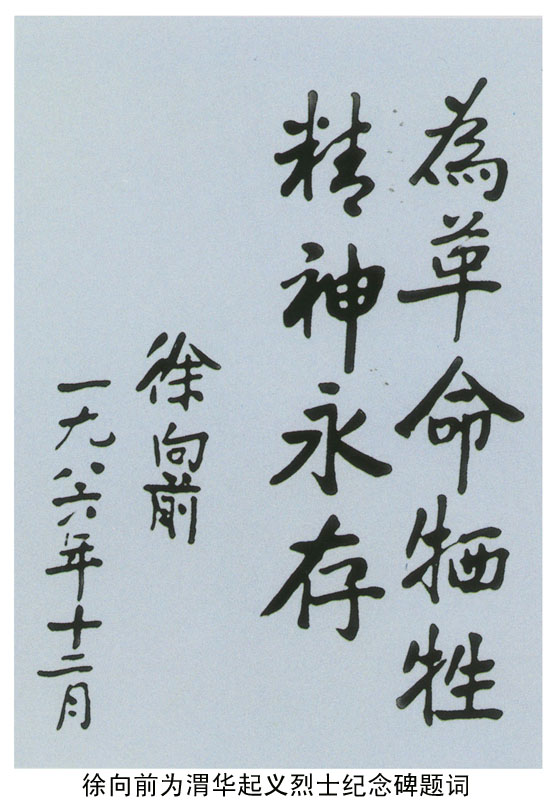 為革命牺牲
精神永存
徐向前
一九八六年十二月
徐向前为渭华起义烈士纪念碑题词